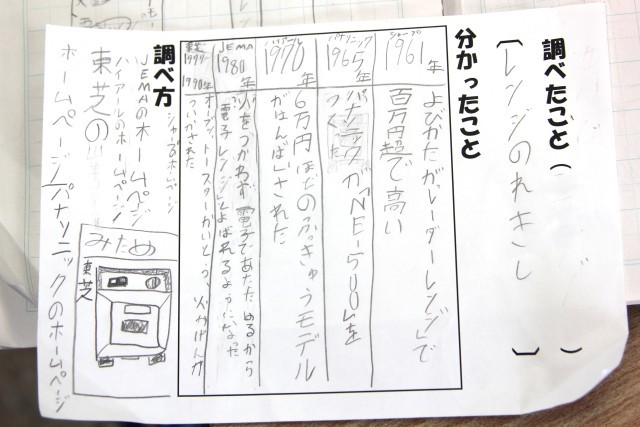 調べたこと(
〔レンジのれきし 〕
)
分かったこと
シャープ
1961年
よびかたが「レーダーレンジ」で
百万円超で高い
パナソニック
1965年
パナソニックが「NE-500」を
つくった
ハイアール
1970年
6万円ほどのふきゅうモデル
がはんばいされた
JEMA
1980年
火をつかわず電子であたためるから
電子レンジとよばれるようになった
東芝
1990年
オーブン、トースター
ついかされた
調べ方
シャープのホームページ
JEMAのホームページ
ハイアールのホームページ
東芝の
ホームページ/パナソニックのホームページ
みため
東芝